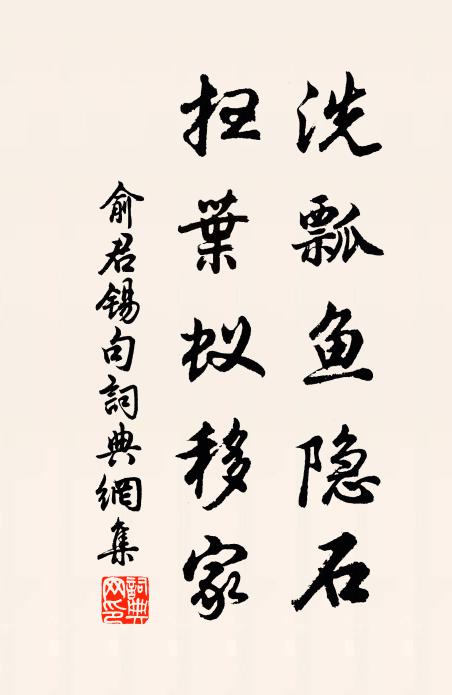 洗瓢鱼隐石
扫葉蚁移家
俞君锡句詞典網集
詞典网印